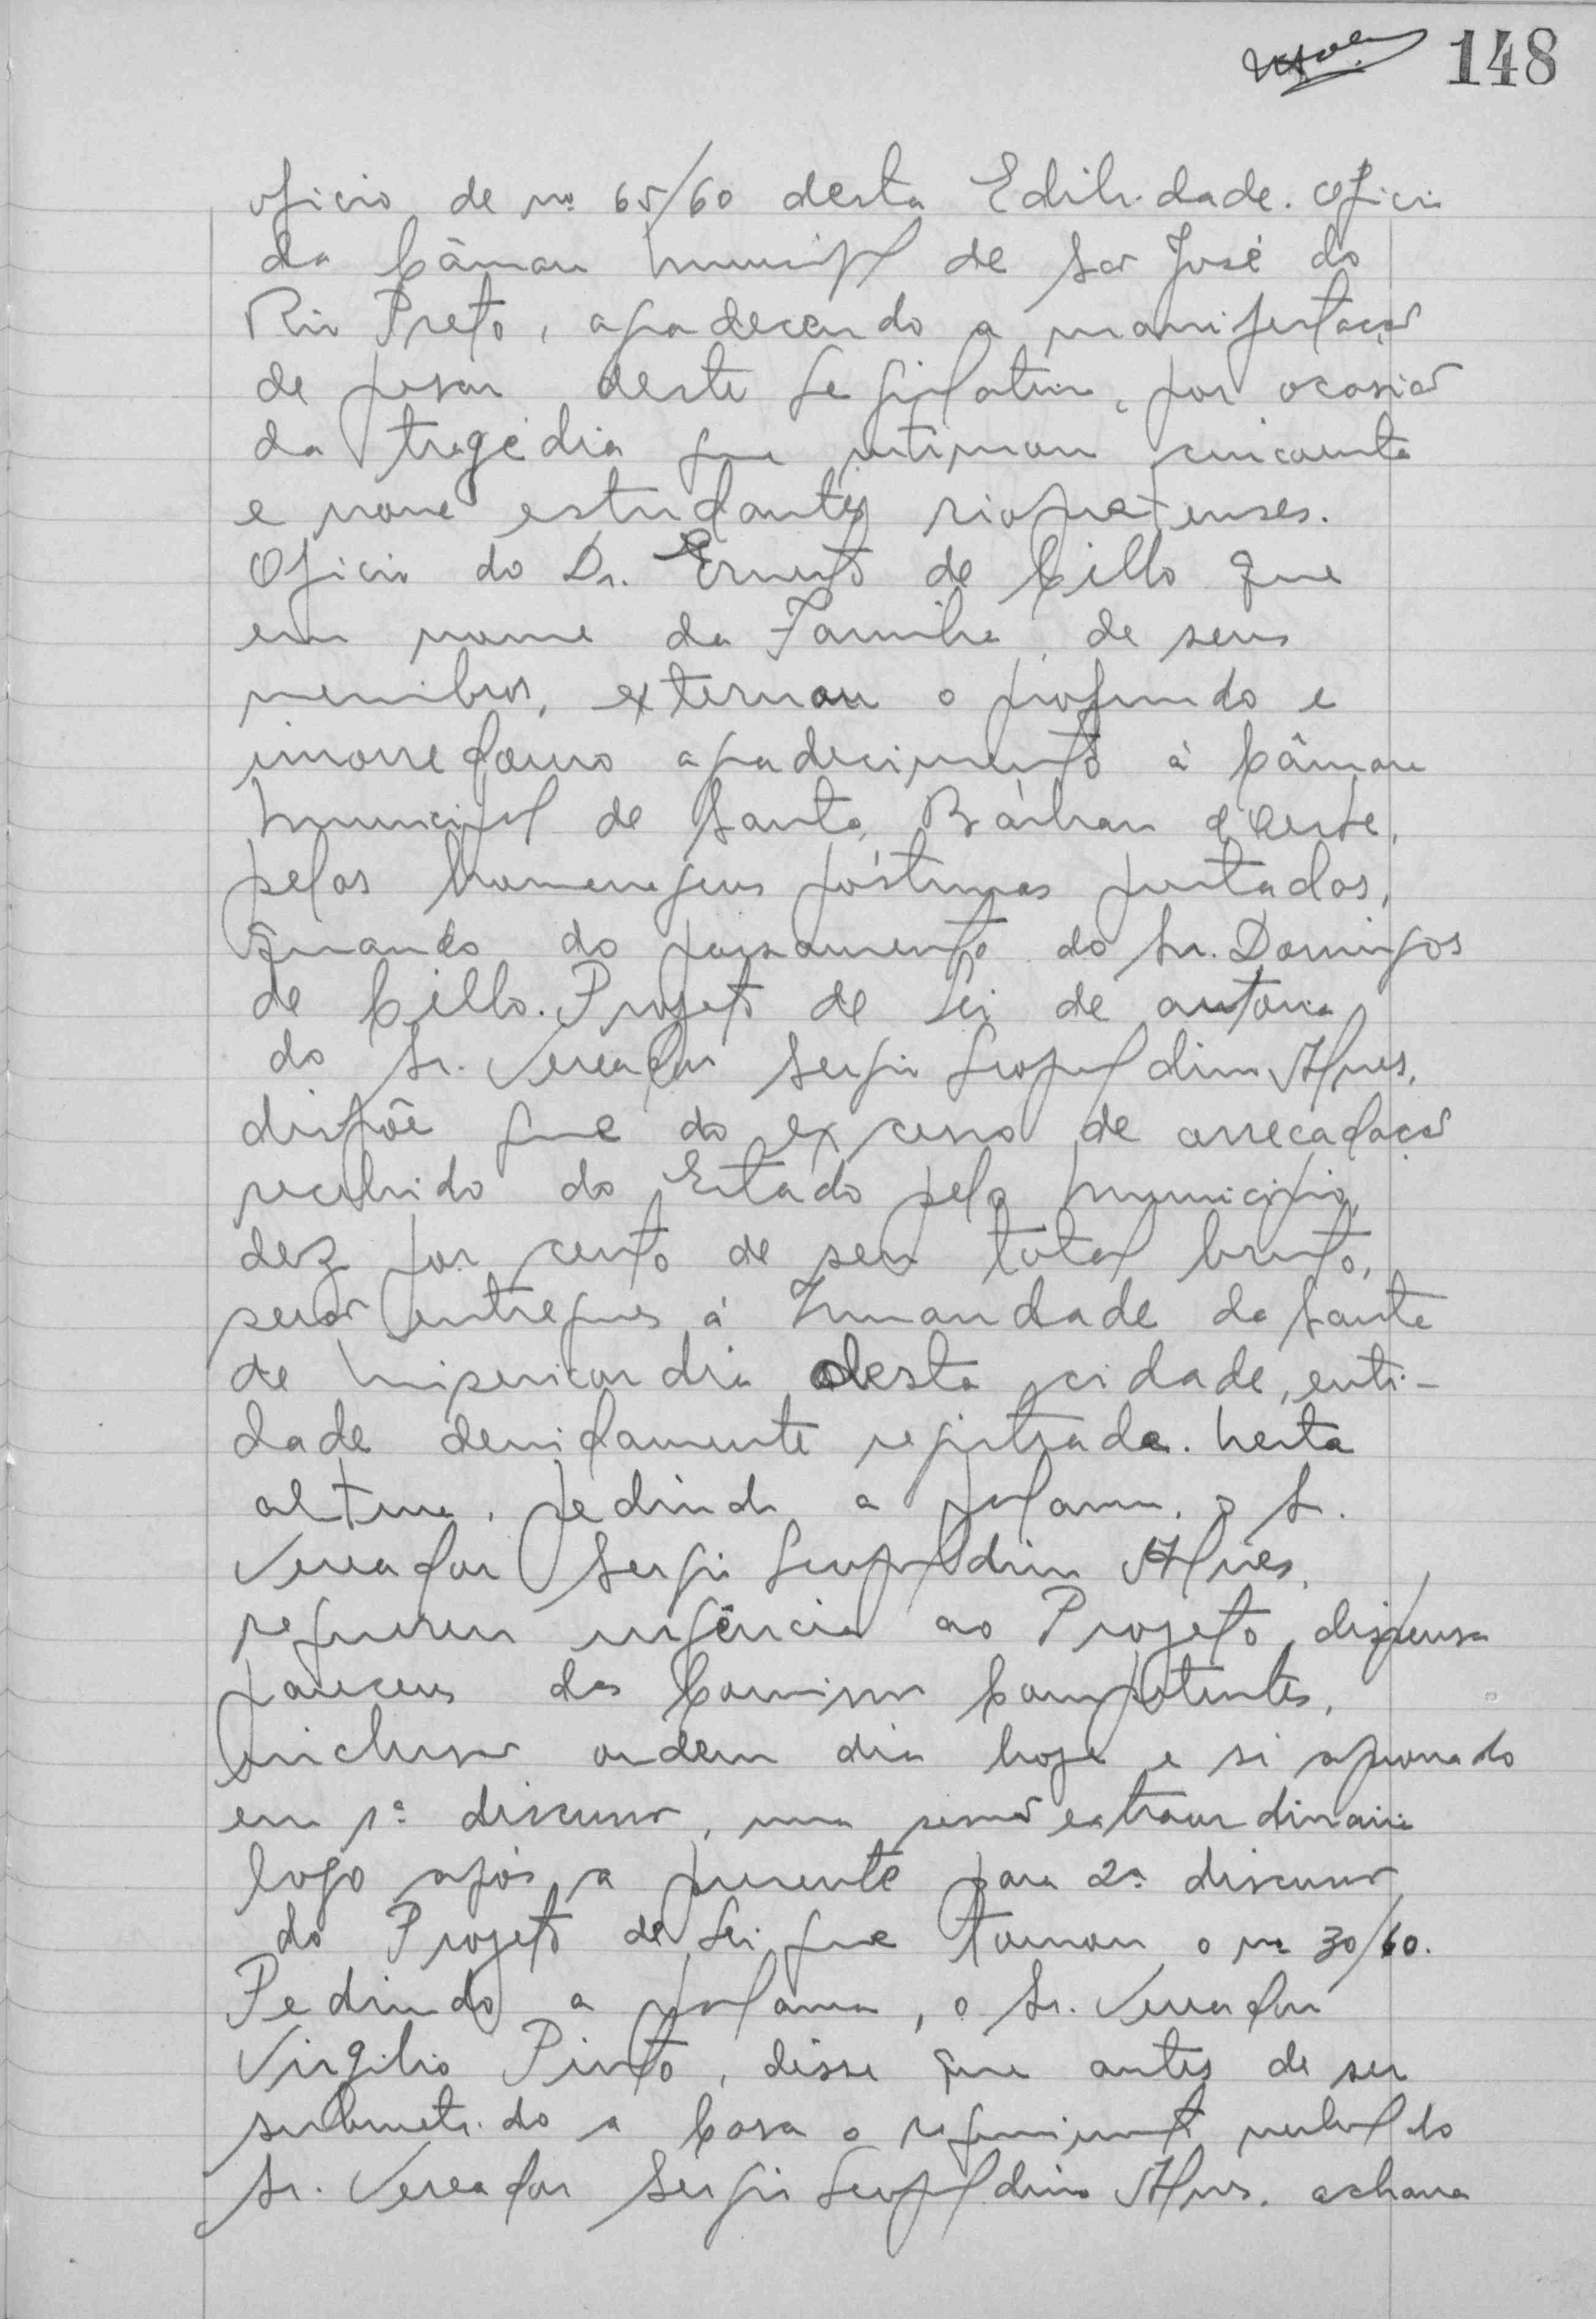 148
oficio de nº 65/60 desta Edilidade. Oficio
da Câmara Municipal de São José do
Rio Preto, agradecendo a manifestação
de pesar deste Legislativo, por ocasião
da tragédia que vitimou cincoenta
e nove estudantes riopretenses.
Oficio do Dr. Ernesto de Cillo que
em nome da Familia, de seus
membros, externou o profundo e
imorredouro agradecimento à Câmara
Municipal de Santa Bárbara d'Oeste,
pelas homenagens póstumas prestadas,
quando do passamento do Sr. Domingos
de Cillo. Projeto de Lei de autoria
do Sr. Vereador Sergio Leopoldino Alves,
dispõe que do excesso de arrecadação
recebido do Estado pelo Municipio,
dez por cento de seu total bruto,
serão entregues à Irmandade da Santa
de Misericordia desta cidade, enti-
dade devidamente registrada. Nesta
altura, pedindo a palavra, o Sr.
Vereador Sergio Leopoldino Alves,
requereu urgência ao Projeto, dispensa
pareceres das Comissões Competentes,
inclusão ordem dia hoje e si aprovado
em 1ª discussão, uma sessão extraordinária
logo após a presente para 2ª discussão
do Projeto de Lei que tomou o nº 30/60.
Pedindo a palavra, o Sr. Vereador
Virgilio Pinto, disse que antes de ser
submetido a Casa o requerimento verbal do
Sr. Vereador Sergio Leopoldino Alves, achava